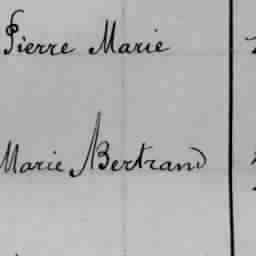 Pierre Marie
Marie Bertrand